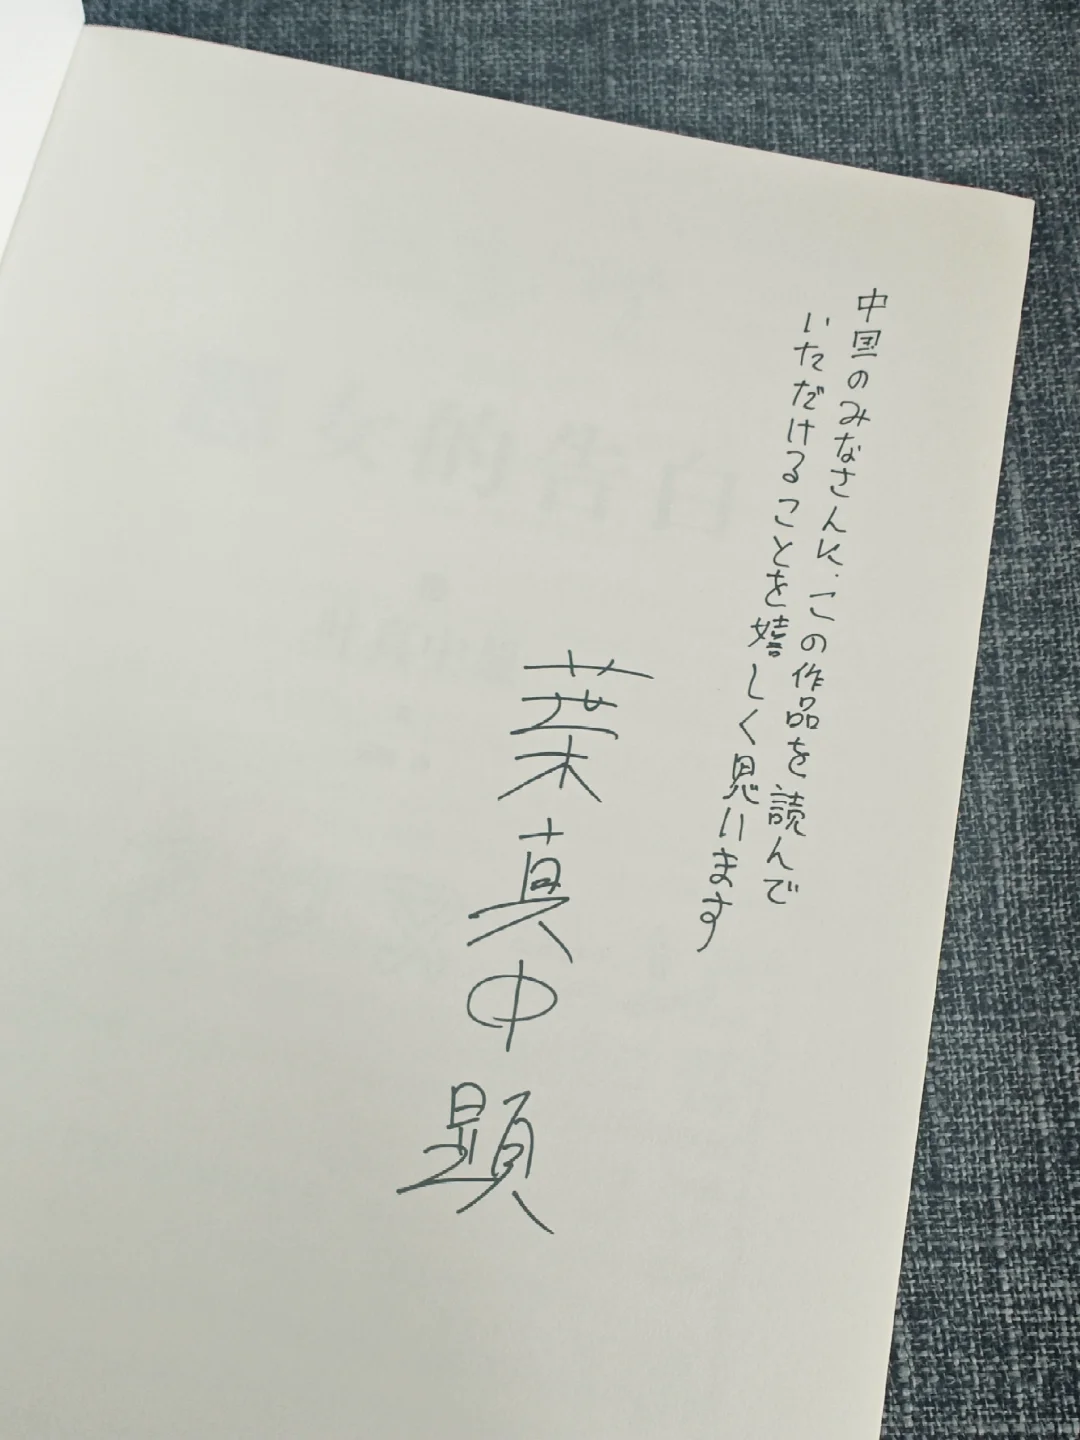 中国のみなさんに、この作品を読んで
いただけることを嬉しく思います
葉真中顕
女的告白